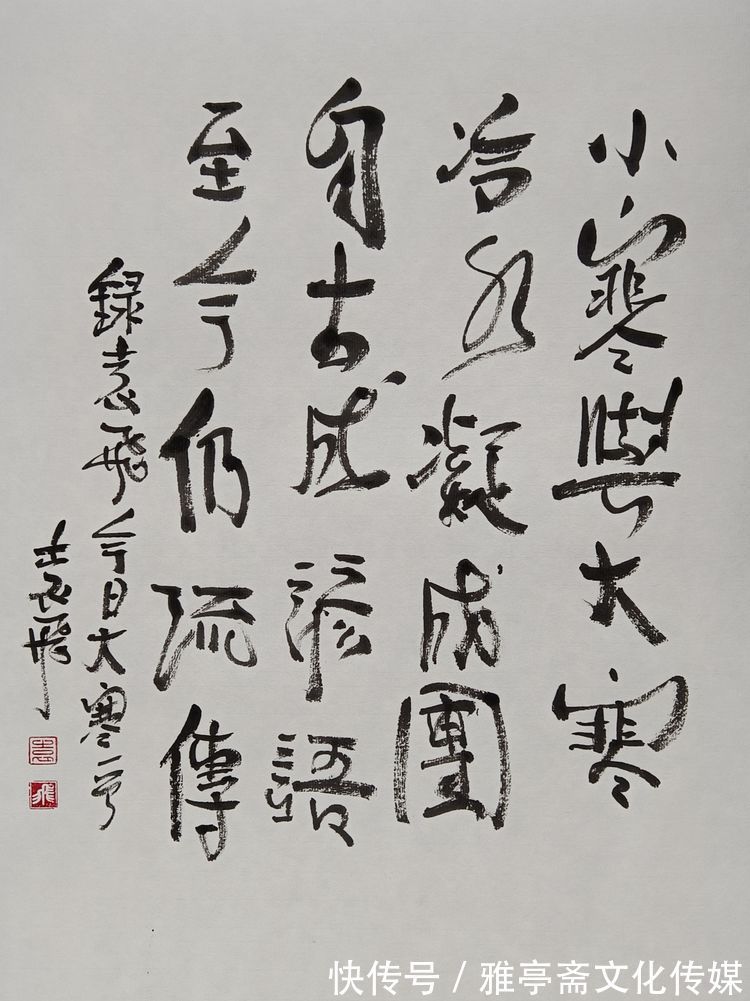 小寒與大寒
冷凝成團
自古成諺語
至今仍流傳
錄袁飛今日大寒一首
袁飛
袁
飛
快传号 / 雅亭斋文化传媒